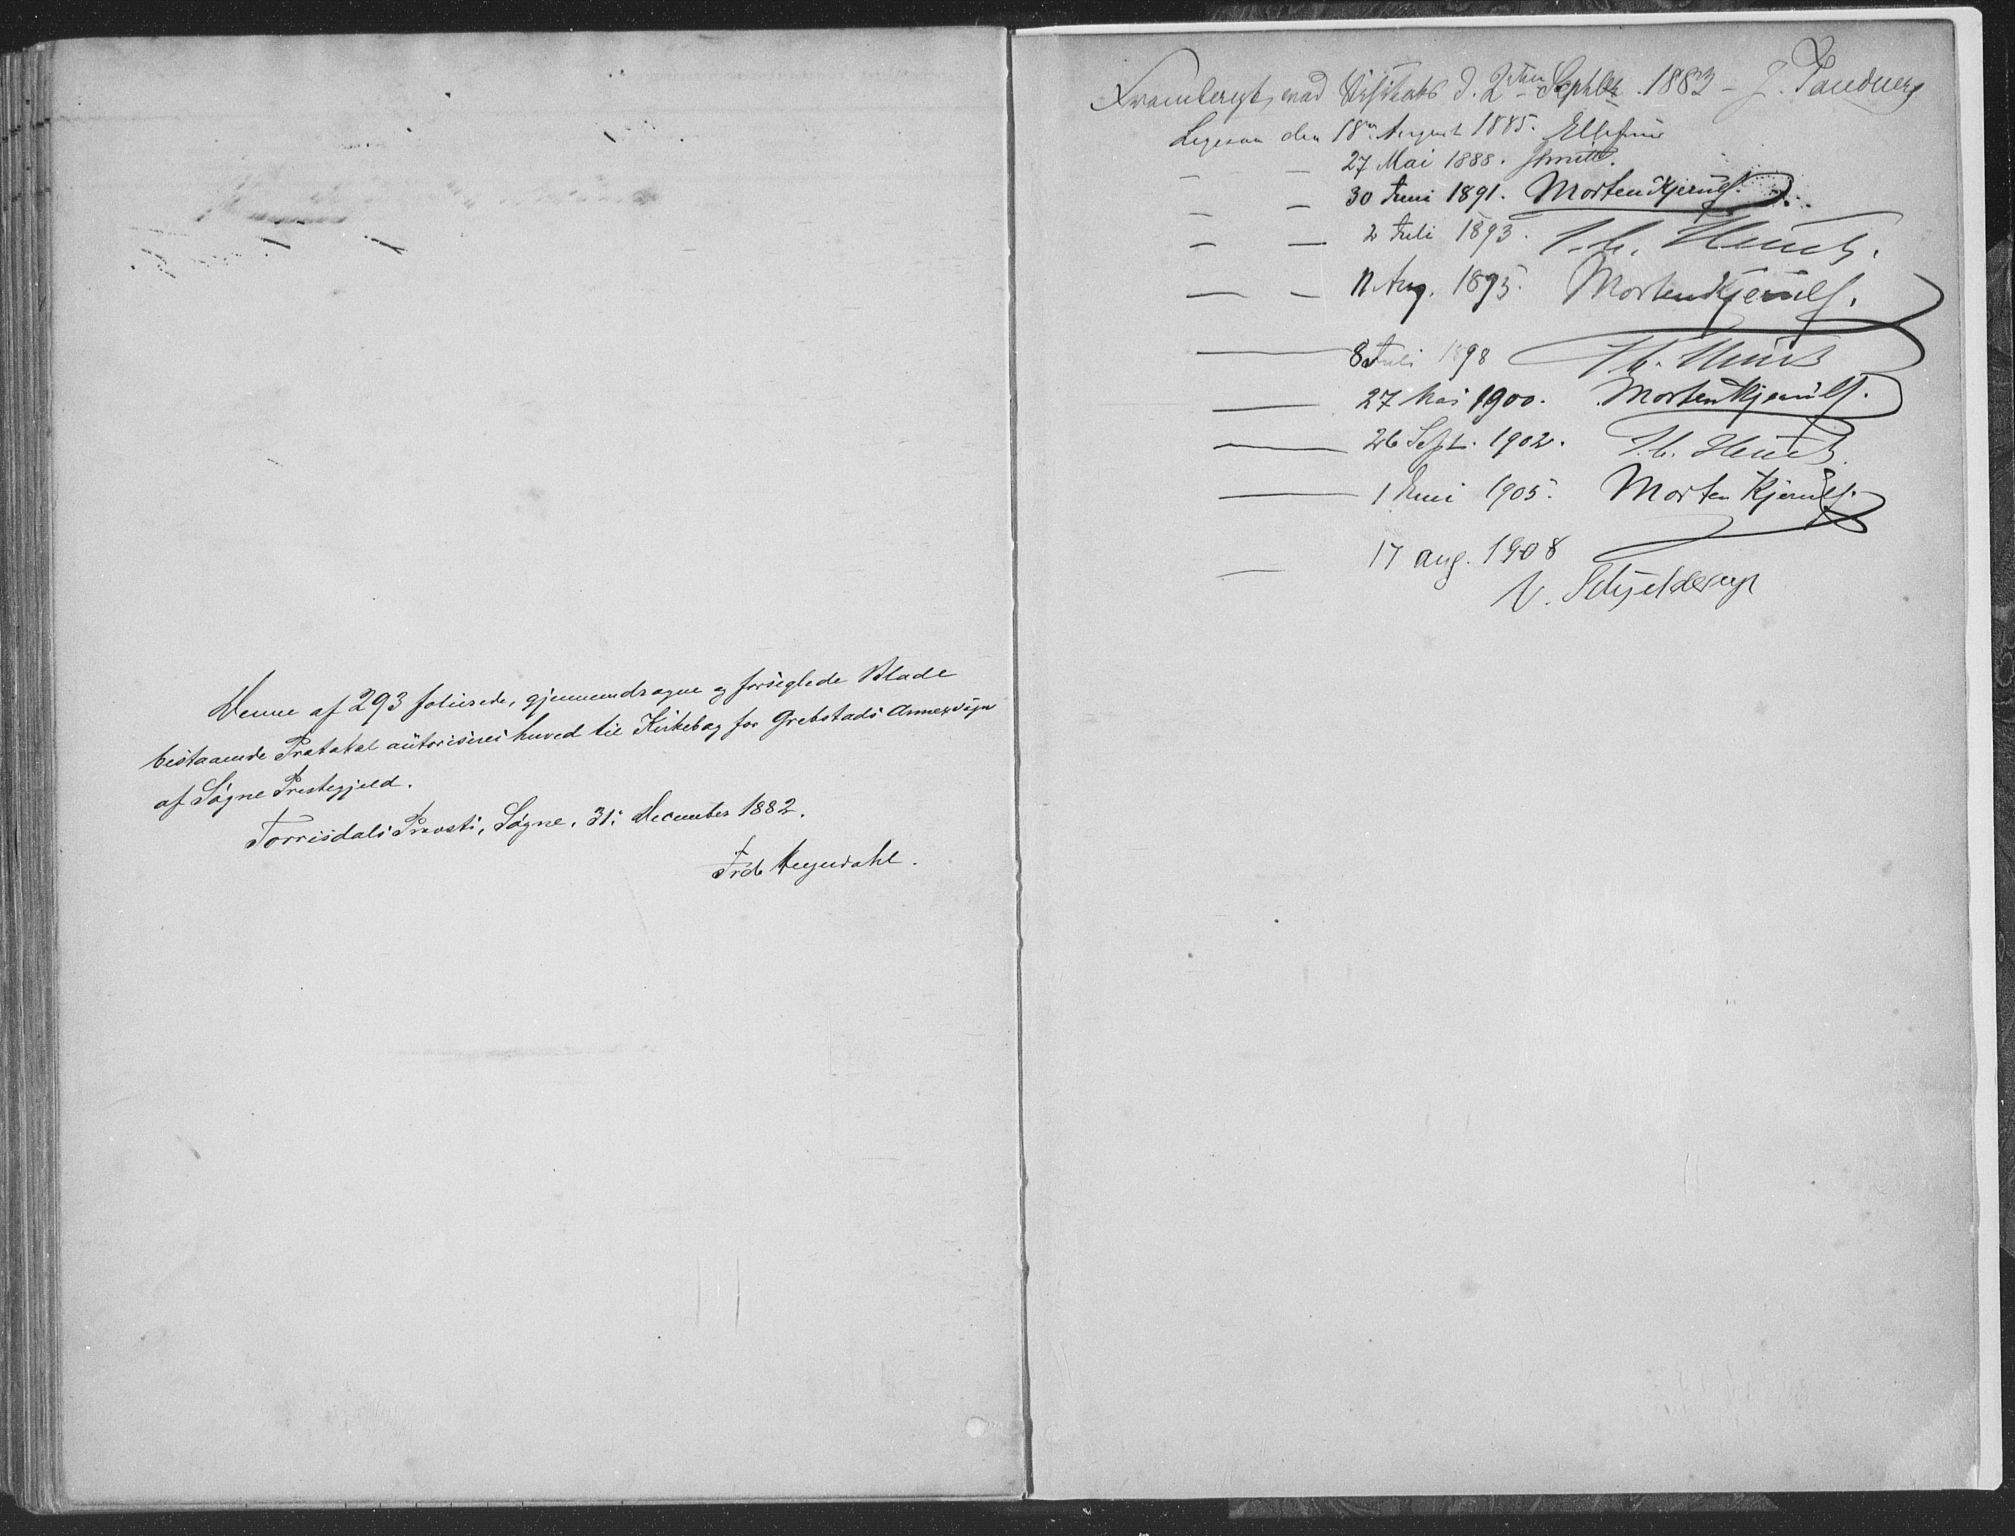 Denne af 293 folierede, gjennemdragne og forseglede Blade
bestaaende Protokol autoriseres herved til Kirkebog for Grebstads Annexsogn
af Søgne Prestegjeld.
Torrisdals Provsti, Søgne, 31. December 1882.
Frdk
Fremlagt ved Visitats d. 2den Septbr. 1883 - J. Sandberg
Ligesaa den 18de August 1885. Ellefsen
— — 27 Mai 1888. Smitt.
— — 30 Juni 1891. Morten Kjerulf.
— — 2 Juli 1893. J. C. Heuch.
— — 11 Aug. 1895. Morten Kjerulf.
— 8 Juli 1898 J. C. Heuch
— 27 Mai 1900. Morten Kjerulf.
— 26 Sept. 1902. J. C. Heuch.
— 1 Juni 1905. Morten Kjerulf.
— 17 aug. 1908
Schjelderup